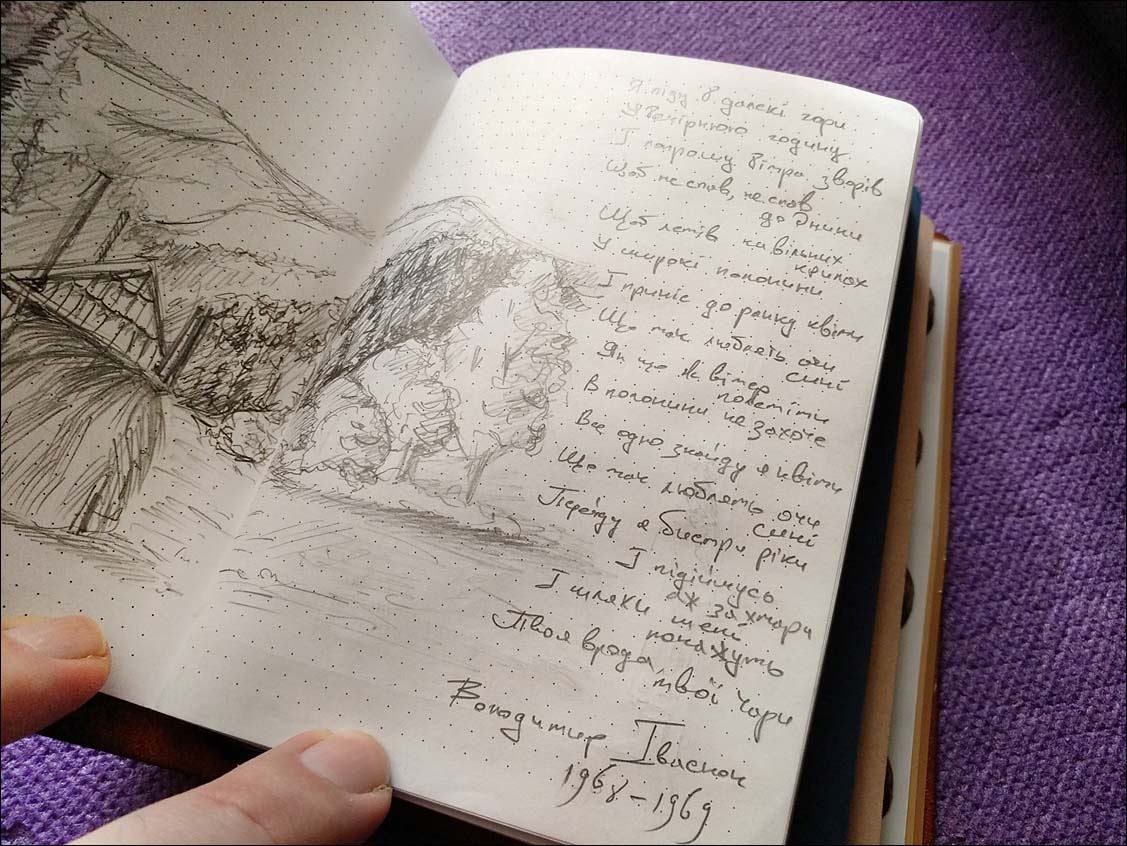 Я піду в далекі гори
У вечірнюю годину
І попрошу вітра зворів
Щоб не спав, не спав
до днини
Щоб летів на вільних
крилах
У широкі полонини
І приніс до ранку квіти
Що так люблять очи
сині
Якщо як вітер
полетіти
В полонини не захоче
Все одно знайду я квіти
Що так люблять очи
сині
Переїду я бистрі ріки
І підіймусь
аж за хмари
І шляхи мені
покажуть
Твоя врода, твої чари
Володимир Івасюк
1968-1969